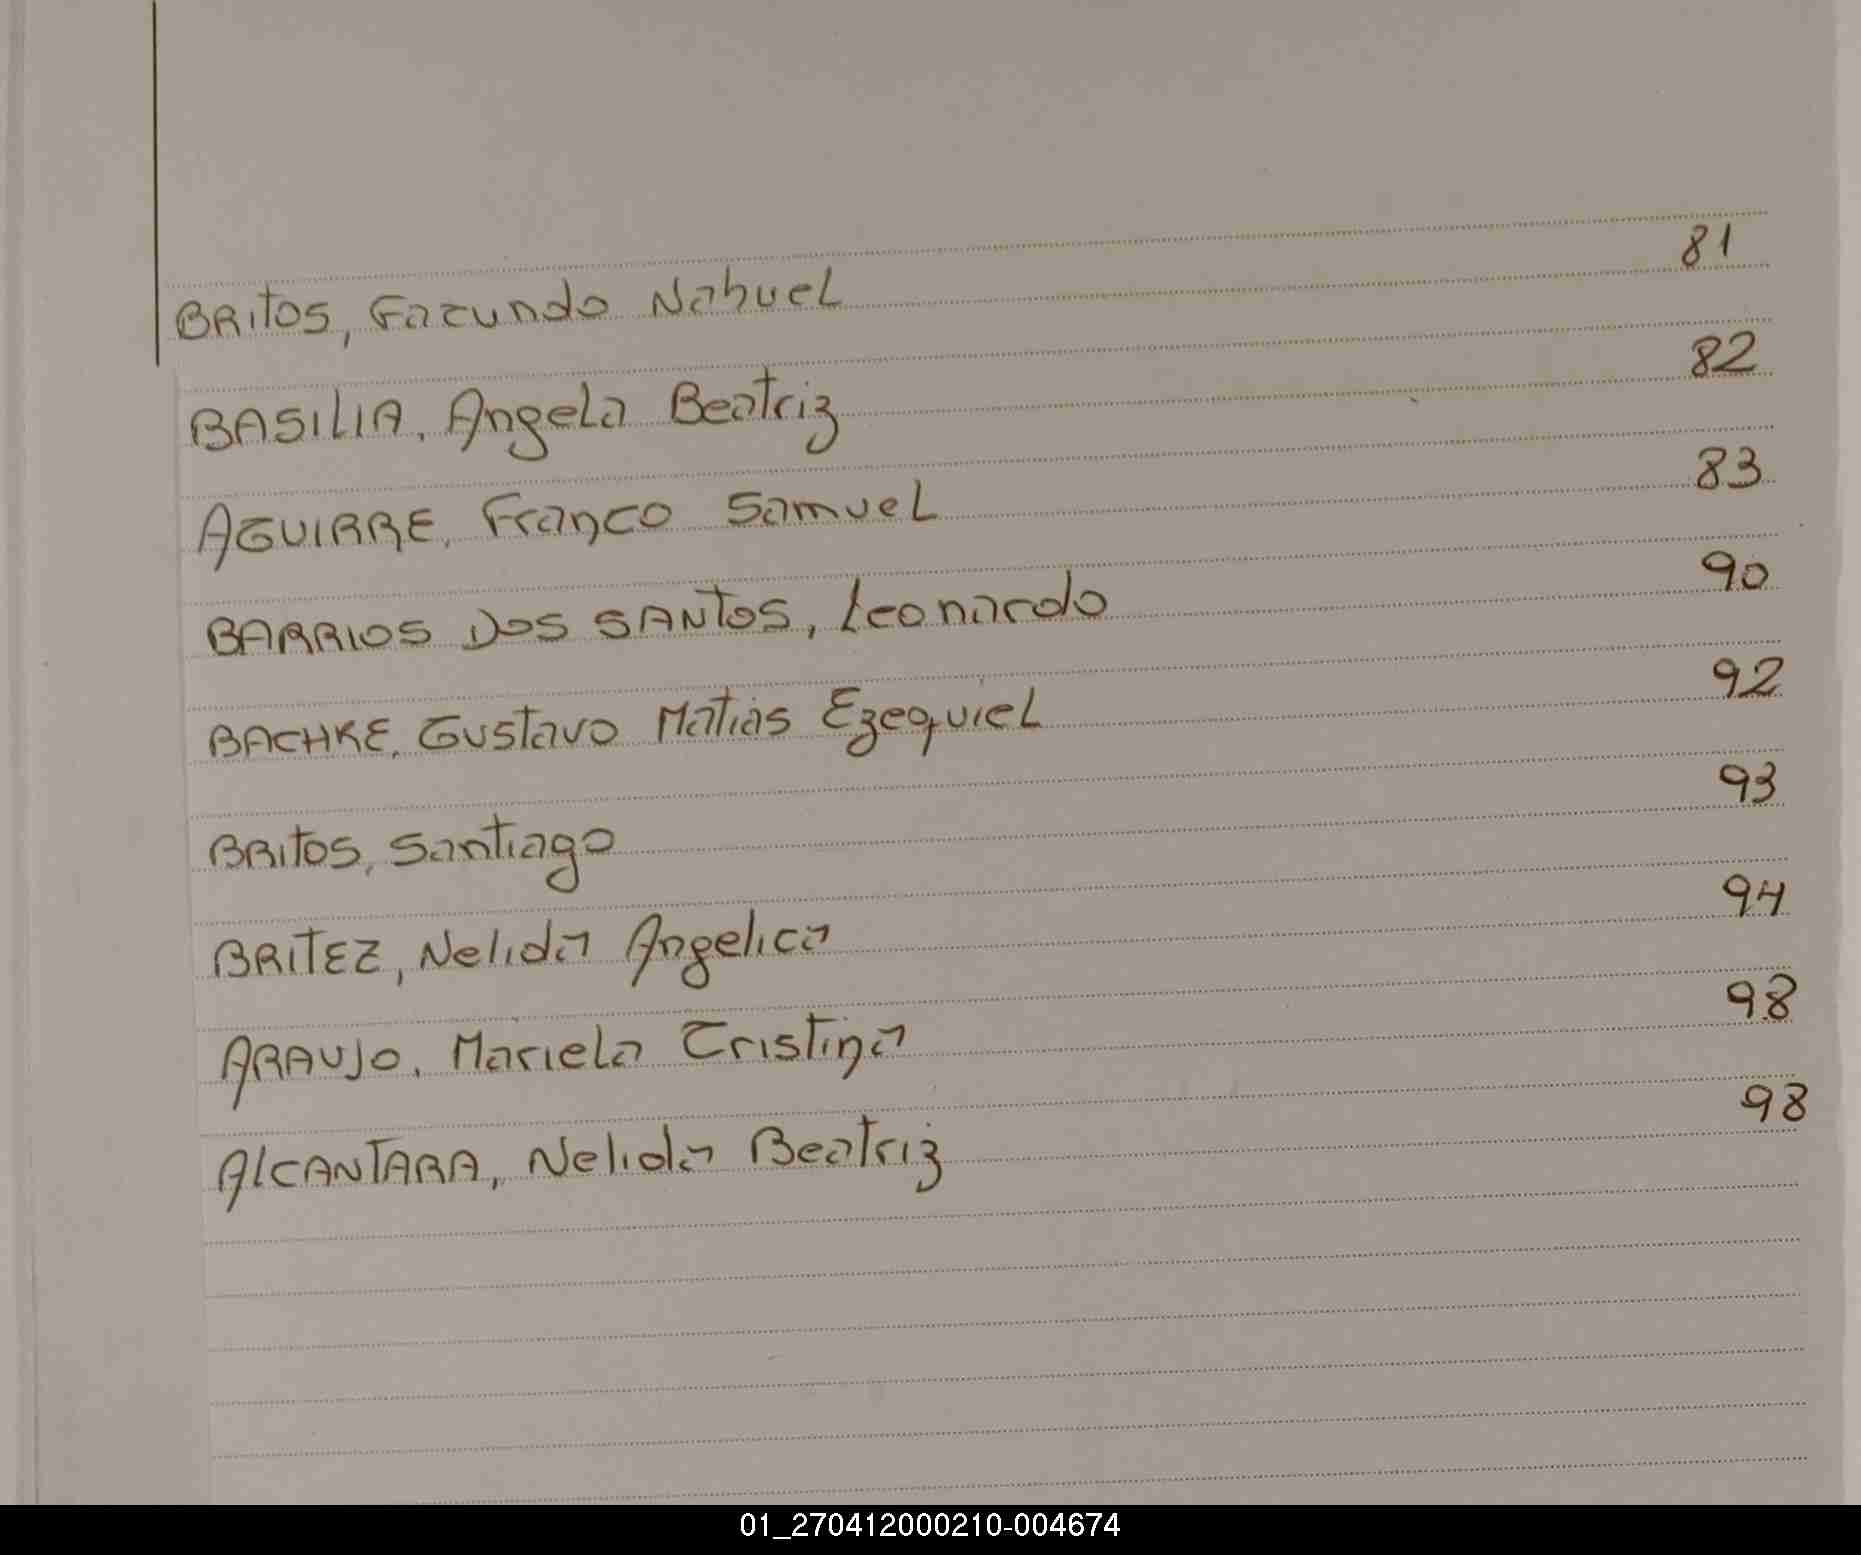 BRITOS, Facundo Nahuel 81
BASILIA, Angela Beatriz 82
AGUIRRE, Franco Samuel 83
BARRIOS DOS SANTOS, Leonardo 90
BACHKE, Gustavo Matias Ezequiel 92
BRITOS, Santiago 93
BRITEZ, Nelida Angelica 94
ARAUJO, Mariela Cristina 98
ALCANTARA, Nelida Beatriz 98
01_270412000210-004674